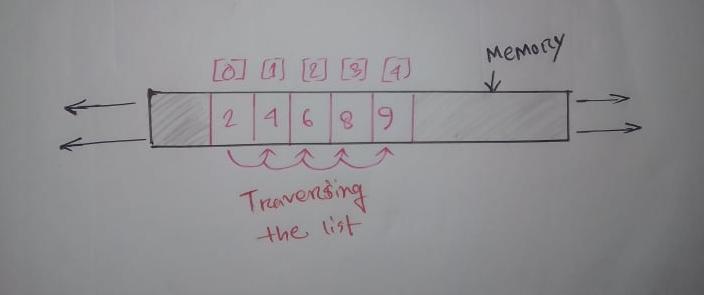 Memory
[0] [1] [2] [3] [4]
2 4 6 8 9
Traversing
the list